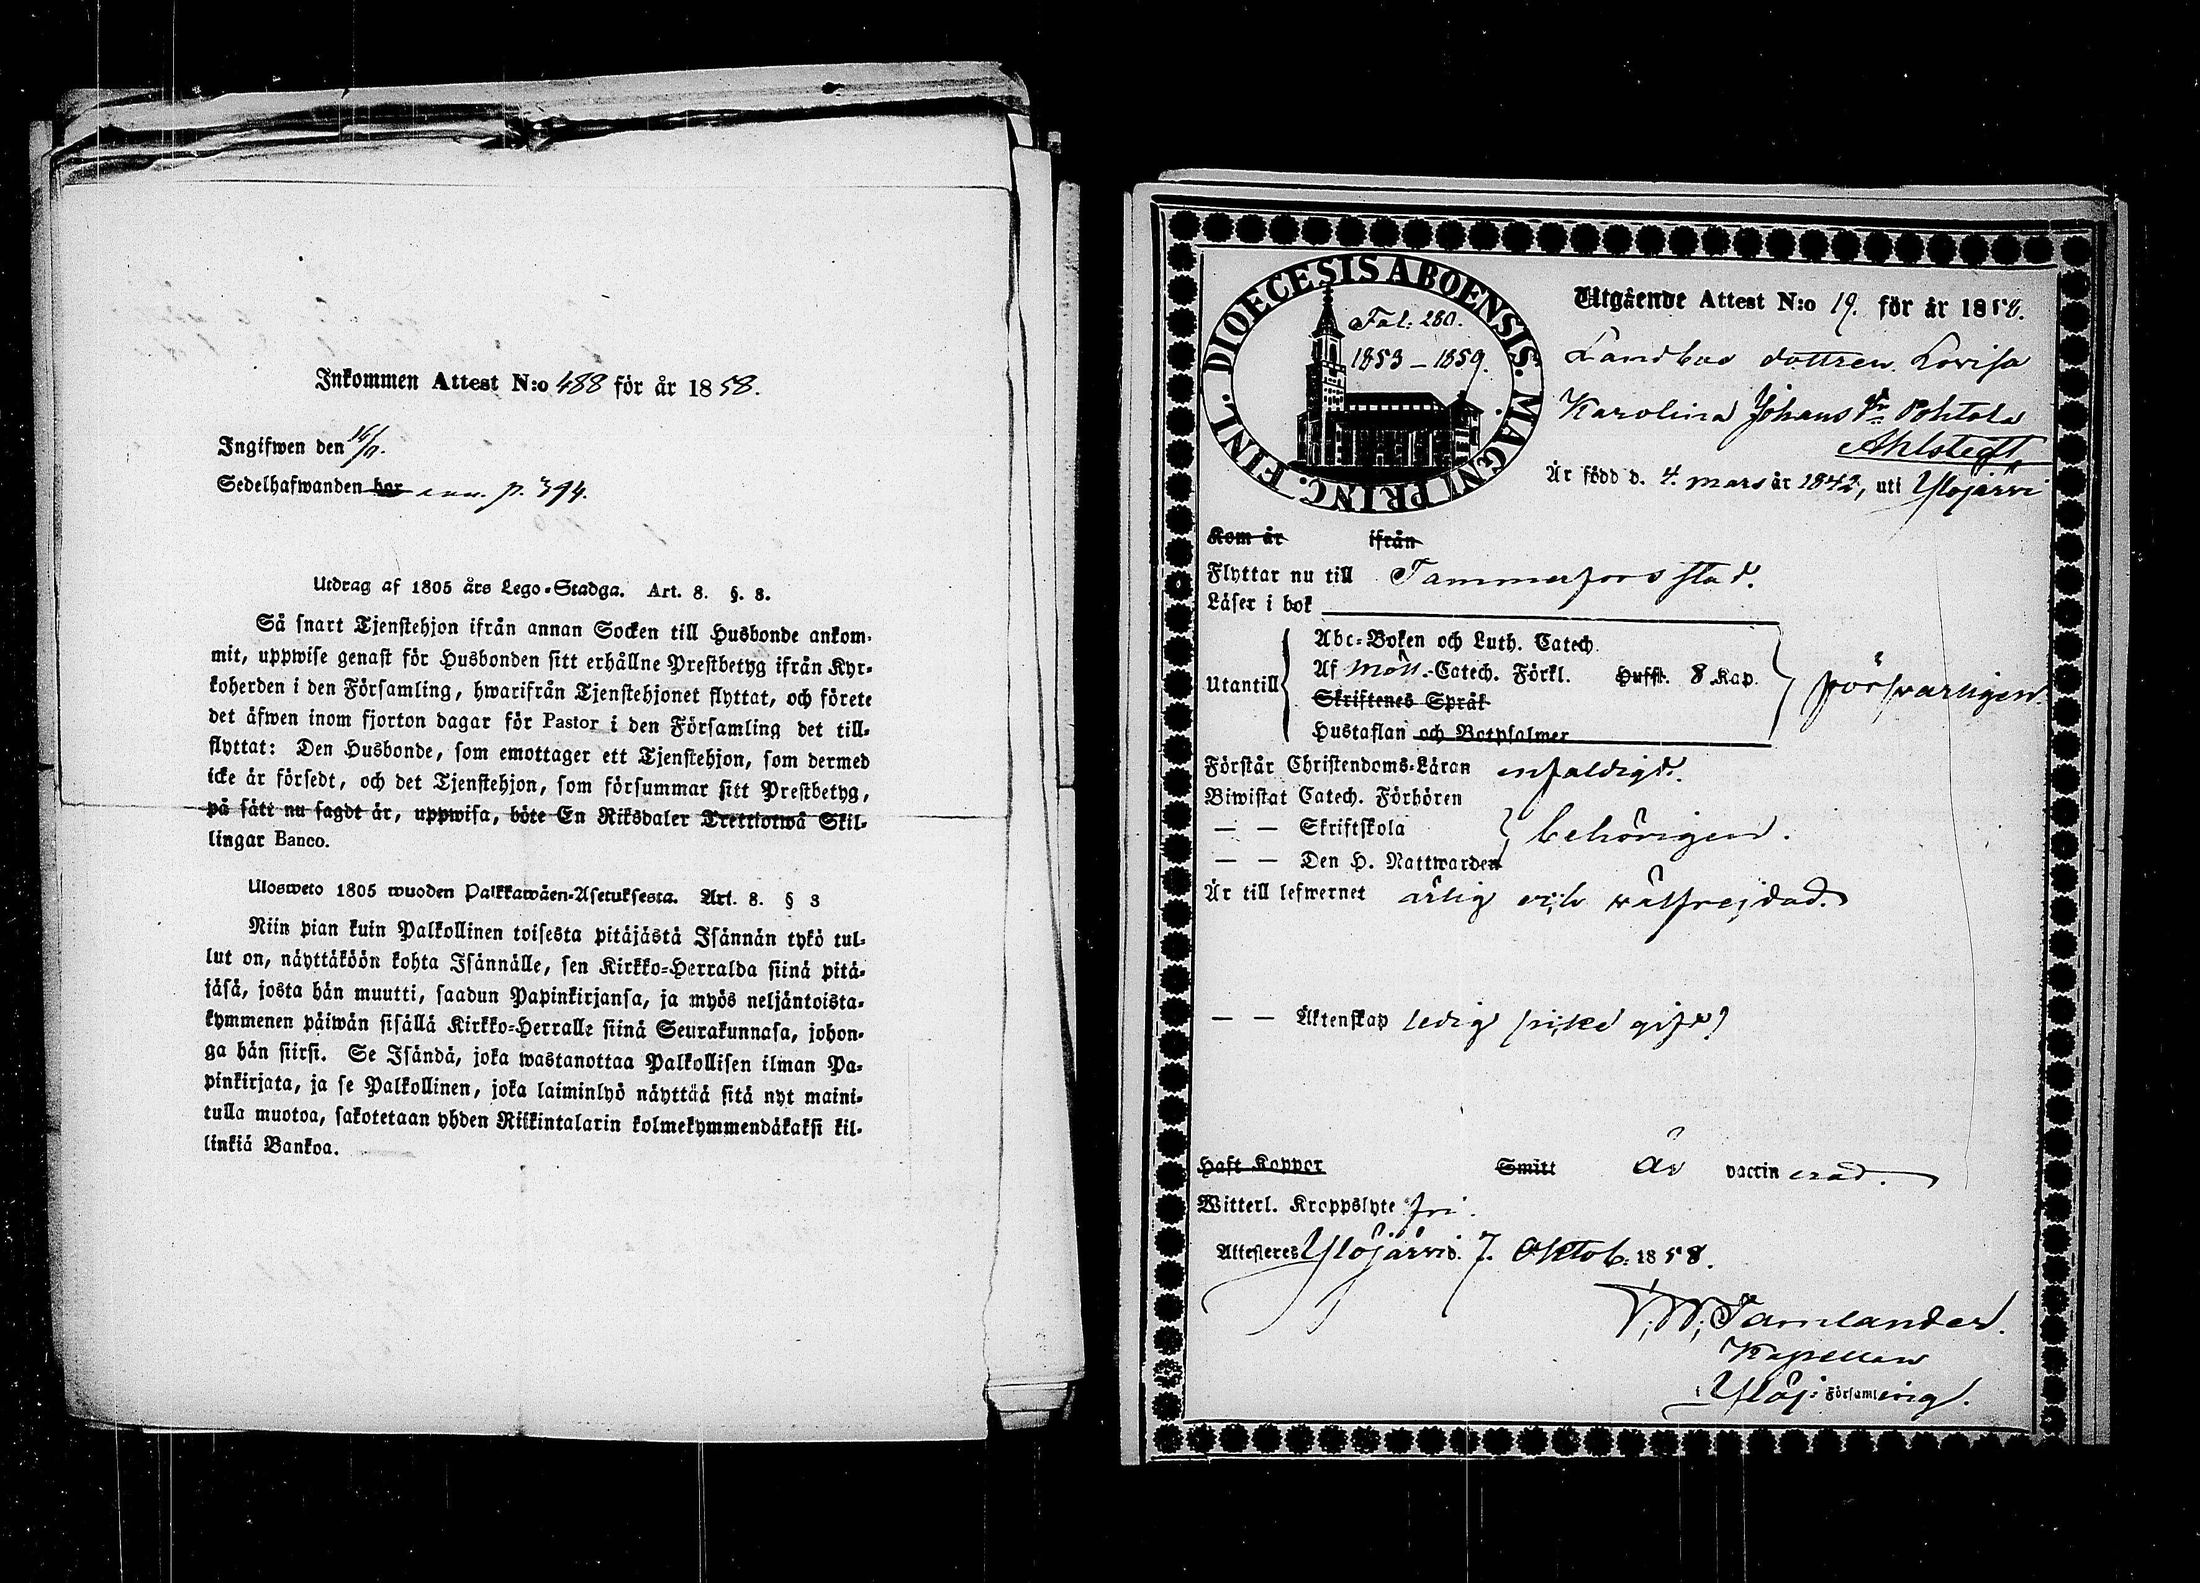 Inkommen Attest N:o 488 för år 1858.
Ingifwen den
Sedelhafwanden har p. 394.
Utdrag af 1805 års Lego-Stadga. Art. 8. §. 3.
Så snart Tjenstehjon ifrån annan Socken till Husbonde ankom-
mit, uppwise genast för Husbonden sitt erhållne Prestbetyg ifrån Kyr-
koherden i den Församling, hwarifrån Tjenstehjonet flyttat, och förete
det äfwen inom fjorton dagar för Pastor i den Församling det till-
flyttat: Den Husbonde, som emottager ett Tjenstehjon, som dermed
icke är försedt, och det Tjenstehjon, som försummar sitt Prestbetyg,
på sätt nu sagdt är, uppwisa, böte En Riksdaler Trettiotwå Skil-
lingar Banco.
Ulosweto 1805 wuoden Palkkawäen-Asetuksesta. Art. 8. § 3
Niin pian kuin Palkollinen toisesta pitäjästä Isännän tykö tul-
lut on, näyttäköön kohta Isännälle, sen Kirkko-Herralda siinä pitä-
jäsä, josta hän muutti, saadun Papinkirjansa, ja myös neljäntoista-
kymmenen päiwän sisällä Kirkko-Herralle siinä Seurakunnasa, johon-
ga hän siirsi. Se Isändä, joka wastanottaa Palkollisen ilman Pa-
pinkirjata, ja se Palkollinen, joka laiminlyö näyttää sitä nyt maini-
tulla muotoa, sakotetaan yhden Riikintalarin kolmekymmendäkaksi kil-
linkiä Bankoa.
DIOECESIS ABOENSIS. MAGNI PRINC. FINL.
Fol: 280.
1853-1859.
Utgående Attest N:o 19. för år 1858.
Landbo dottren Lovisa
Karolina Johans dr Pohtola
Ahlstedt
Är född d. 4. mars år 1842, uti Ylöjärvi
Kom år ifrån
Flyttar nu till Tammerfors stad.
Läser i bok
Utantill
Abc-Boken och Luth. Catech.
Af Möll.-Catech. Förkl. Hufst. 8 Kap.
Skriftenes Språk
Hustaflan och Botpsalmer
försvarligen.
Förstår Christendoms-Läran enfaldigt.
Biwistat Catech. Förhören
— — Skriftskola
behörigen.
— — Den H. Nattwarden
Är till lefwernet ärlig och wälfrejdad.
— — Äktenskap ledig
Haft Koppor Smitt Är vaccinerad.
Witterl. Kroppslyte fri.
Attesteres Ylöjärvi d. 7. Oktob. 1858.
Kapellan
i Ylöj: Församling.